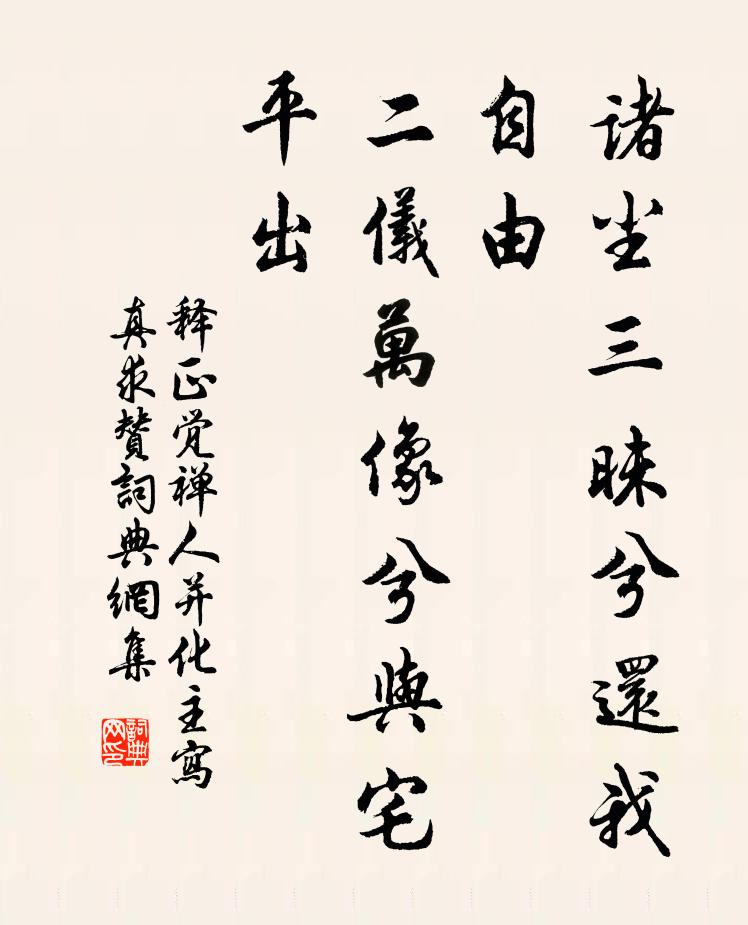 諸尘三昧兮還我
自由
二儀萬像兮與宅
平出
释正觉禅人并化主寫
真求賛詞典網集
詞典
网印